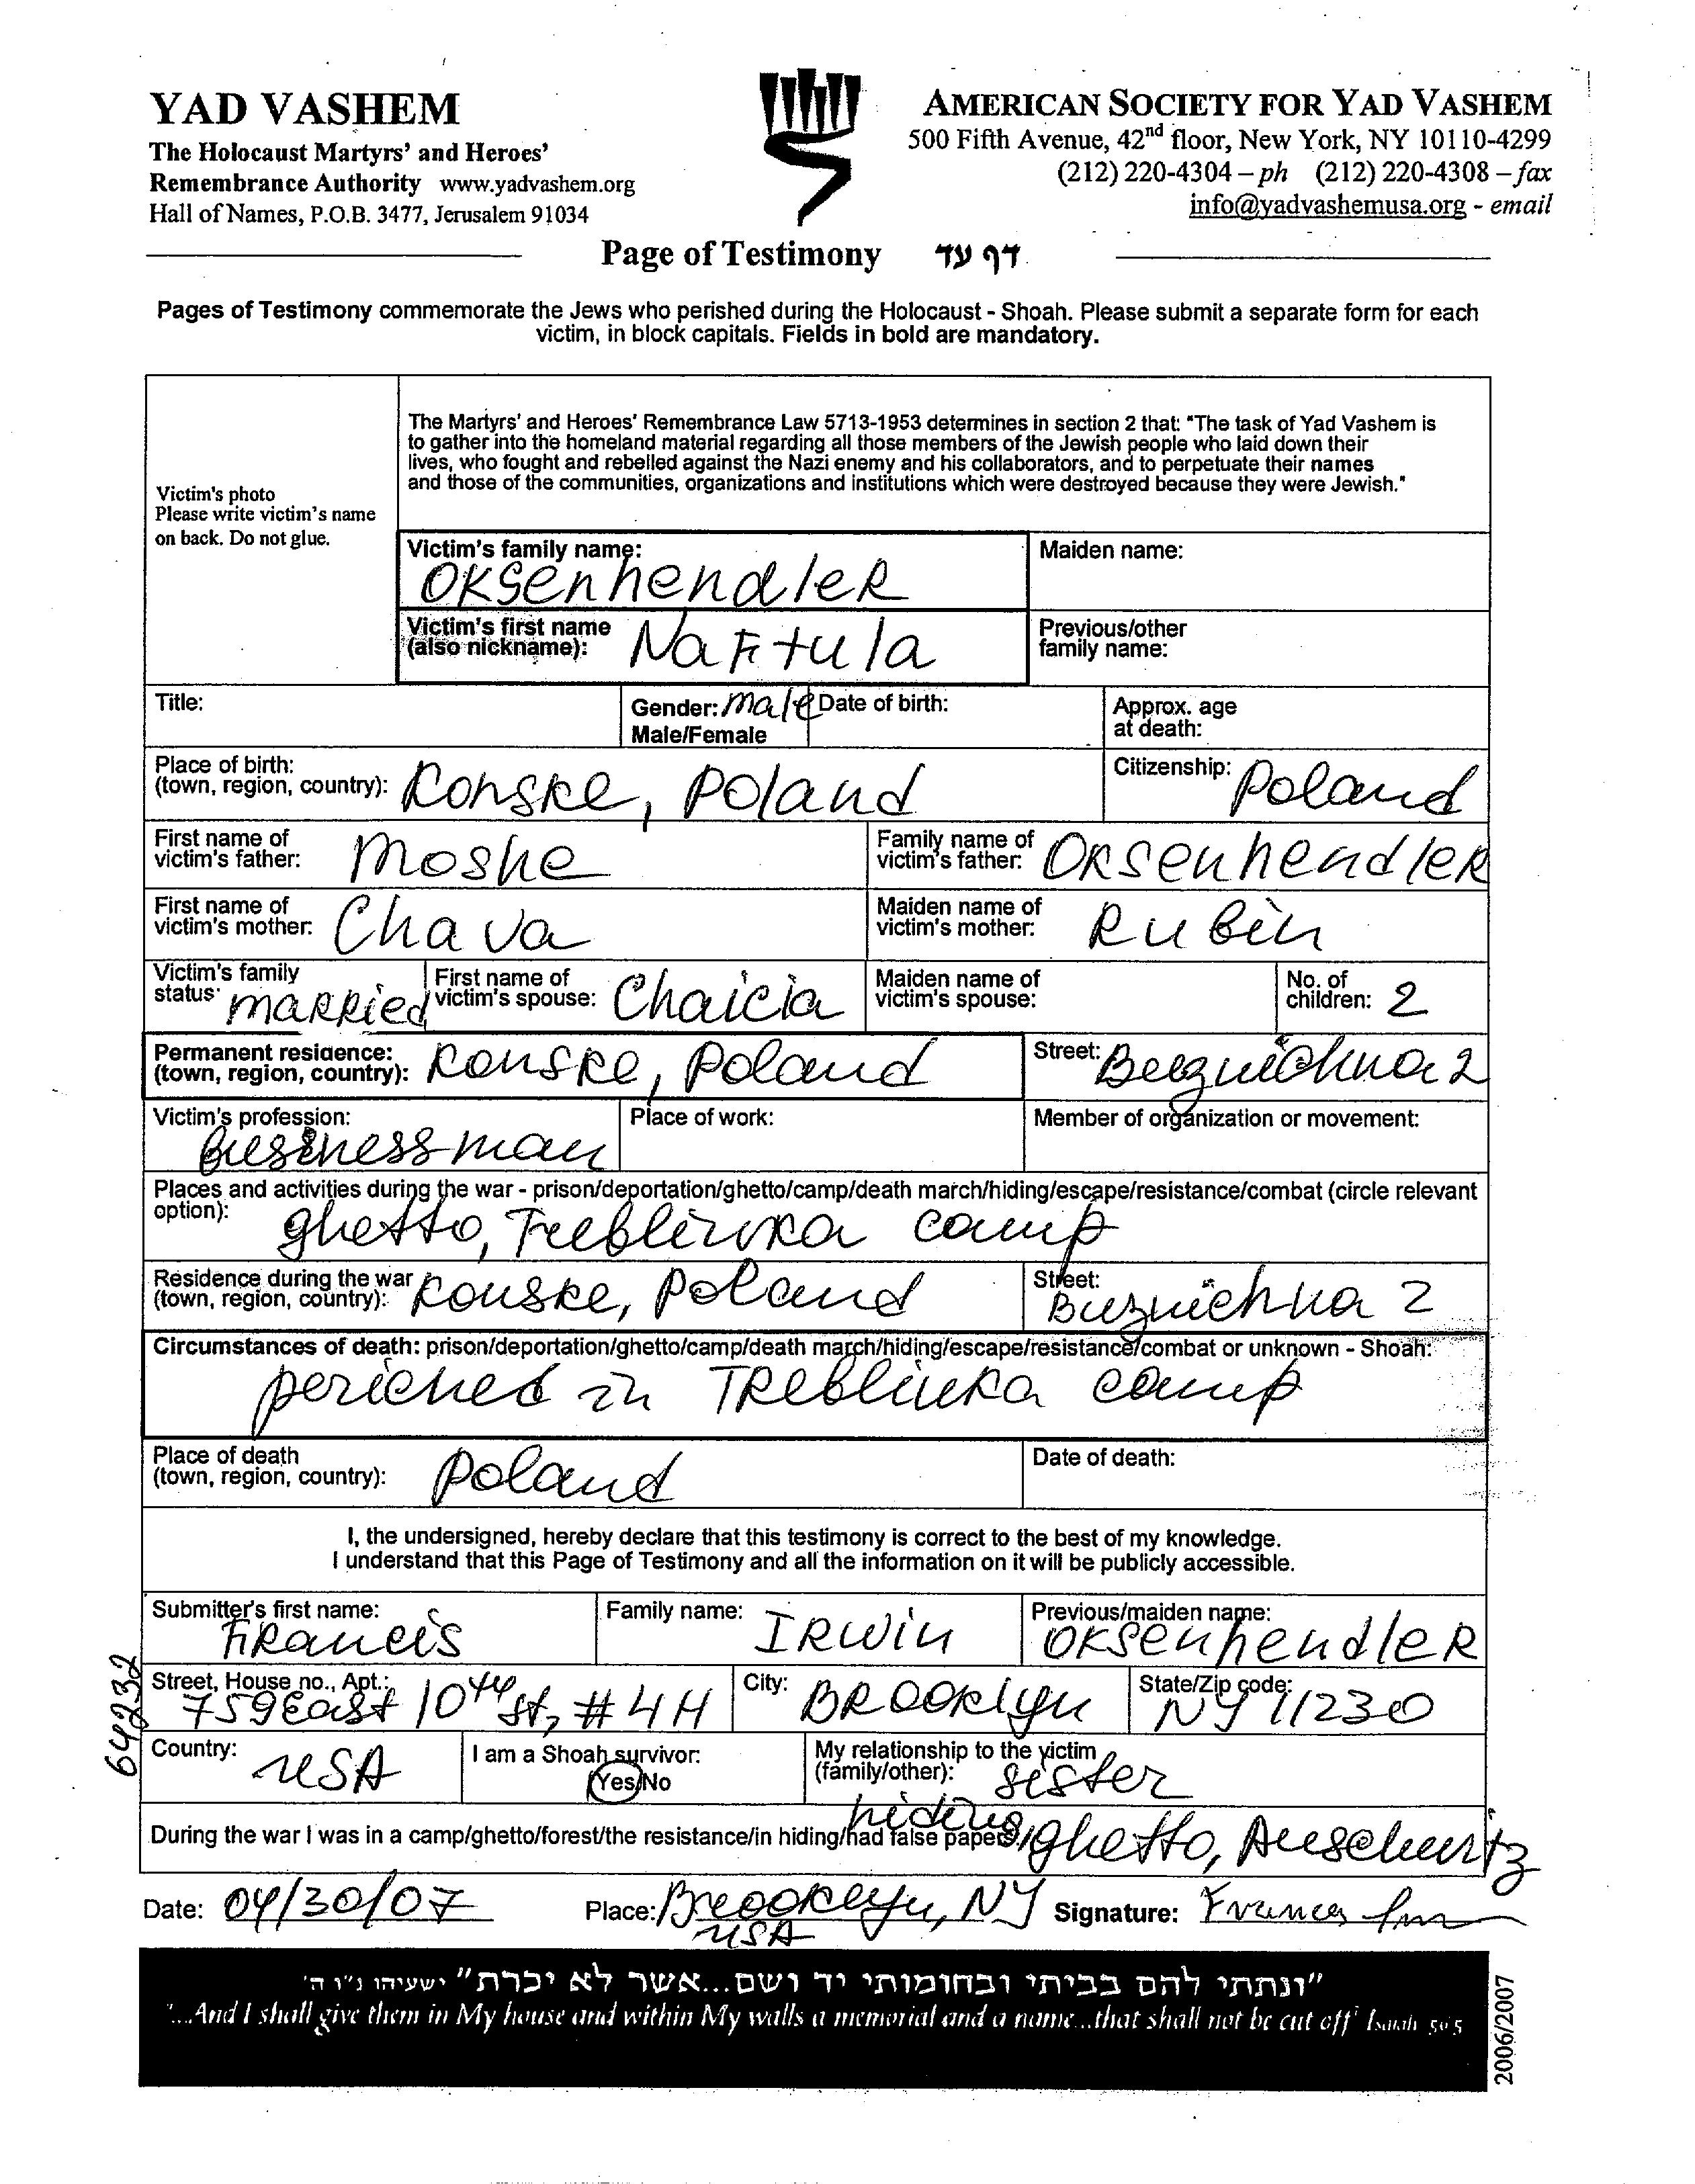 YAD VASHEM
The Holocaust Martyrs' and Heroes'
Remembrance Authority www.yadvashem.org
Hall of Names, P.O.B. 3477, Jerusalem 91034
AMERICAN SOCIETY FOR YAD VASHEM
500 Fifth Avenue, 42nd floor, New York, NY 10110-4299
(212) 220-4304 – ph (212) 220-4308 – fax
info@yadvashemusa.org - email
Page of Testimony דף עד
Pages of Testimony commemorate the Jews who perished during the Holocaust - Shoah. Please submit a separate form for each
victim, in block capitals. Fields in bold are mandatory.
Victim's photo
Please write victim's name
on back. Do not glue.
The Martyrs' and Heroes' Remembrance Law 5713-1953 determines in section 2 that: "The task of Yad Vashem is
to gather into the homeland material regarding all those members of the Jewish people who laid down their
lives, who fought and rebelled against the Nazi enemy and his collaborators, and to perpetuate their names
and those of the communities, organizations and institutions which were destroyed because they were Jewish."
Victim's family name:
OKSenhendleR
Maiden name:
Victim's first name
(also nickname): Naftula
Previous/other
family name:
Title:
Gender: Male
Male/Female
Date of birth:
Approx. age
at death:
Place of birth:
(town, region, country): Konske, Poland
Citizenship: Poland
First name of
victim's father: Moshe
Family name of
victim's father: OKSenhendleR
First name of
victim's mother: Chava
Maiden name of
victim's mother: Rubin
Victim's family
status: maRRied
First name of
victim's spouse: Chaicia
Maiden name of
victim's spouse:
No. of
children: 2
Permanent residence:
(town, region, country): Konske, Poland
Street: 2
Victim's profession:
Businessman
Place of work:
Member of organization or movement:
Places and activities during the war - prison/deportation/ghetto/camp/death march/hiding/escape/resistance/combat (circle relevant
option): ghetto, Treblinka camp
Residence during the war
(town, region, country): Konske, Poland
Street:
Buznichna 2
Circumstances of death: prison/deportation/ghetto/camp/death march/hiding/escape/resistance/combat or unknown - Shoah:
periched in TReblinka camp
Place of death
(town, region, country): Poland
Date of death:
I, the undersigned, hereby declare that this testimony is correct to the best of my knowledge.
I understand that this Page of Testimony and all the information on it will be publicly accessible.
Submitter's first name:
FRancis
Family name: IRwin
Previous/maiden name:
OKSenhendleR
Street, House no., Apt.:
759 East 10th St, #4H
City: BRooklyn
State/Zip code:
NY 11230
64232
Country: USA
I am a Shoah survivor:
Yes/No
My relationship to the victim
(family/other): sisteR
hiding
During the war I was in a camp/ghetto/forest/the resistance/in hiding/had false papers: ghetto, Auschwitz
Date: 04/30/07
Place: Brooklyn, NY
USA
Signature: Frances
"ונתתי להם בביתי ובחומותי יד ושם...אשר לא יכרת" ישעיהו נ"ו ה'
"...And I shall give them in My house and within My walls a memorial and a name...that shall not be cut off" Isaiah 56:5
2006/2007